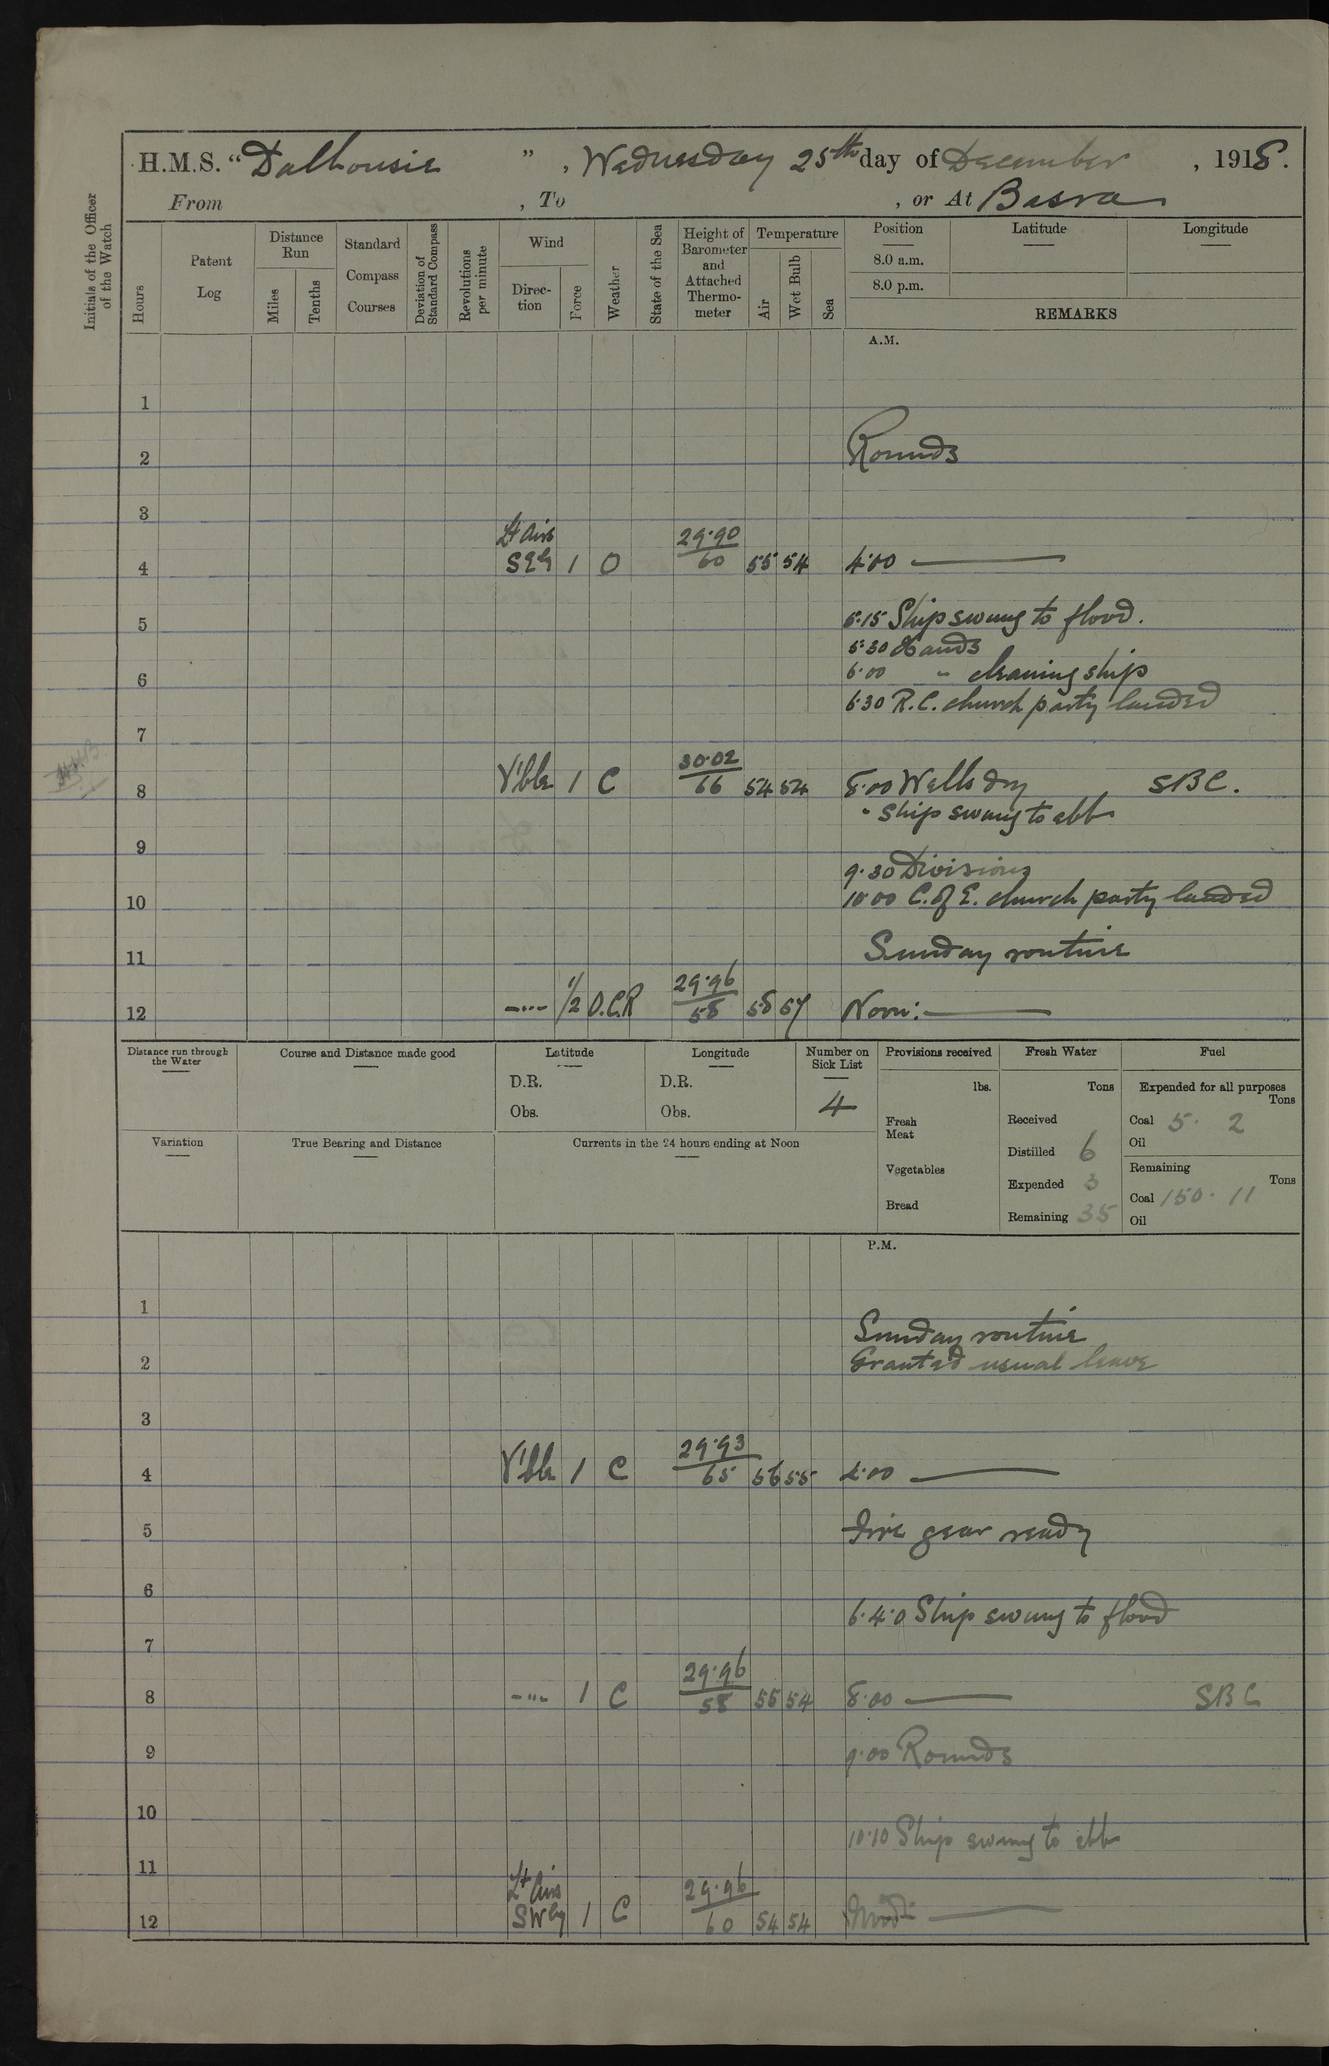 H.M.S. "Dalhousie", Wednesday 25th day of December, 1918.
From , To , or At Basra
Initials of the Officer of the Watch
Hours
Patent Log
Distance Run
Miles
Tenths
Standard Compass Courses
Deviation of Standard Compass
Revolutions per minute
Wind
Direction
Force
Weather
State of the Sea
Height of Barometer and Attached Thermometer
Temperature
Air
Wet Bulb
Sea
Position
Latitude
Longitude
8.0 a.m.
8.0 p.m.
REMARKS
A.M.
1
2 Rounds
3
Lt Airs 29.90
4 SEly 1 O 60 55 54 4.00 ———
5 5.15 Ship swung to flood.
5.30 Hands
6 6.00 " cleaning ship
6.30 R.C. church party landed
7
30.02
8 V'ble 1 C 66 54 54 8.00 Wells dry SBC.
" Ship swung to ebb
9
9.30 Divisions
10 10.00 C. of E. church party landed
11 Sunday routine
29.96
12 -"- 1/2 O.C.R 58 58 57 Noon: ———
Distance run through the Water
Course and Distance made good
Latitude
D.R.
Obs.
Longitude
D.R.
Obs.
Number on Sick List
4
Provisions received
lbs.
Fresh Meat
Vegetables
Bread
Fresh Water
Tons
Received
Distilled 6
Expended 3
Remaining 35
Fuel
Expended for all purposes
Tons
Coal 5. 2
Oil
Remaining
Tons
Coal 150. 11
Oil
Variation
True Bearing and Distance
Currents in the 24 hours ending at Noon
P.M.
1
Sunday routine
2 Granted usual leave
3
29.93
4 V'ble 1 C 65 56 55 4.00 ———
5 Fire gear ready
6
6.40 Ship swung to flood
7
29.96
8 -"- 1 C 58 55 54 8.00 ——— SBC
9 9.00 Rounds
10
10.10 Ship swung to ebb
11
Lt Airs 29.96
12 SWly 1 C 60 54 54 Mid: ———